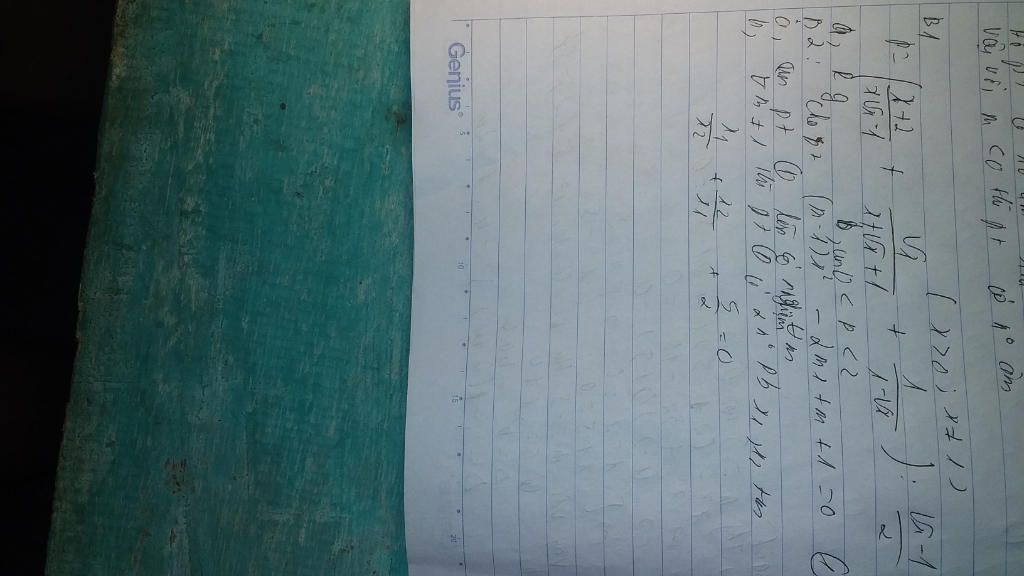 Vậy với m có thì pt có n° âm
B1 ( x > 0 ; x ≠ 1 )
P = ( x+2 / x√x-1 + √x / x+√x+1 + 1 / 1-√x ) : √x-1 / 2
a, Rg b, 0 < P < 2
B2 : Cho pt (m-1)x² - 2mx + m + 1 = 0 (1
a, pt (1) luôn có nghiệm m
b, m ≠ 1 thì pt (1) có 2 n° pb x1, x2 tm
x1/x2 + x2/x1 + 5/2 = 0
Genius
5 10 15 20